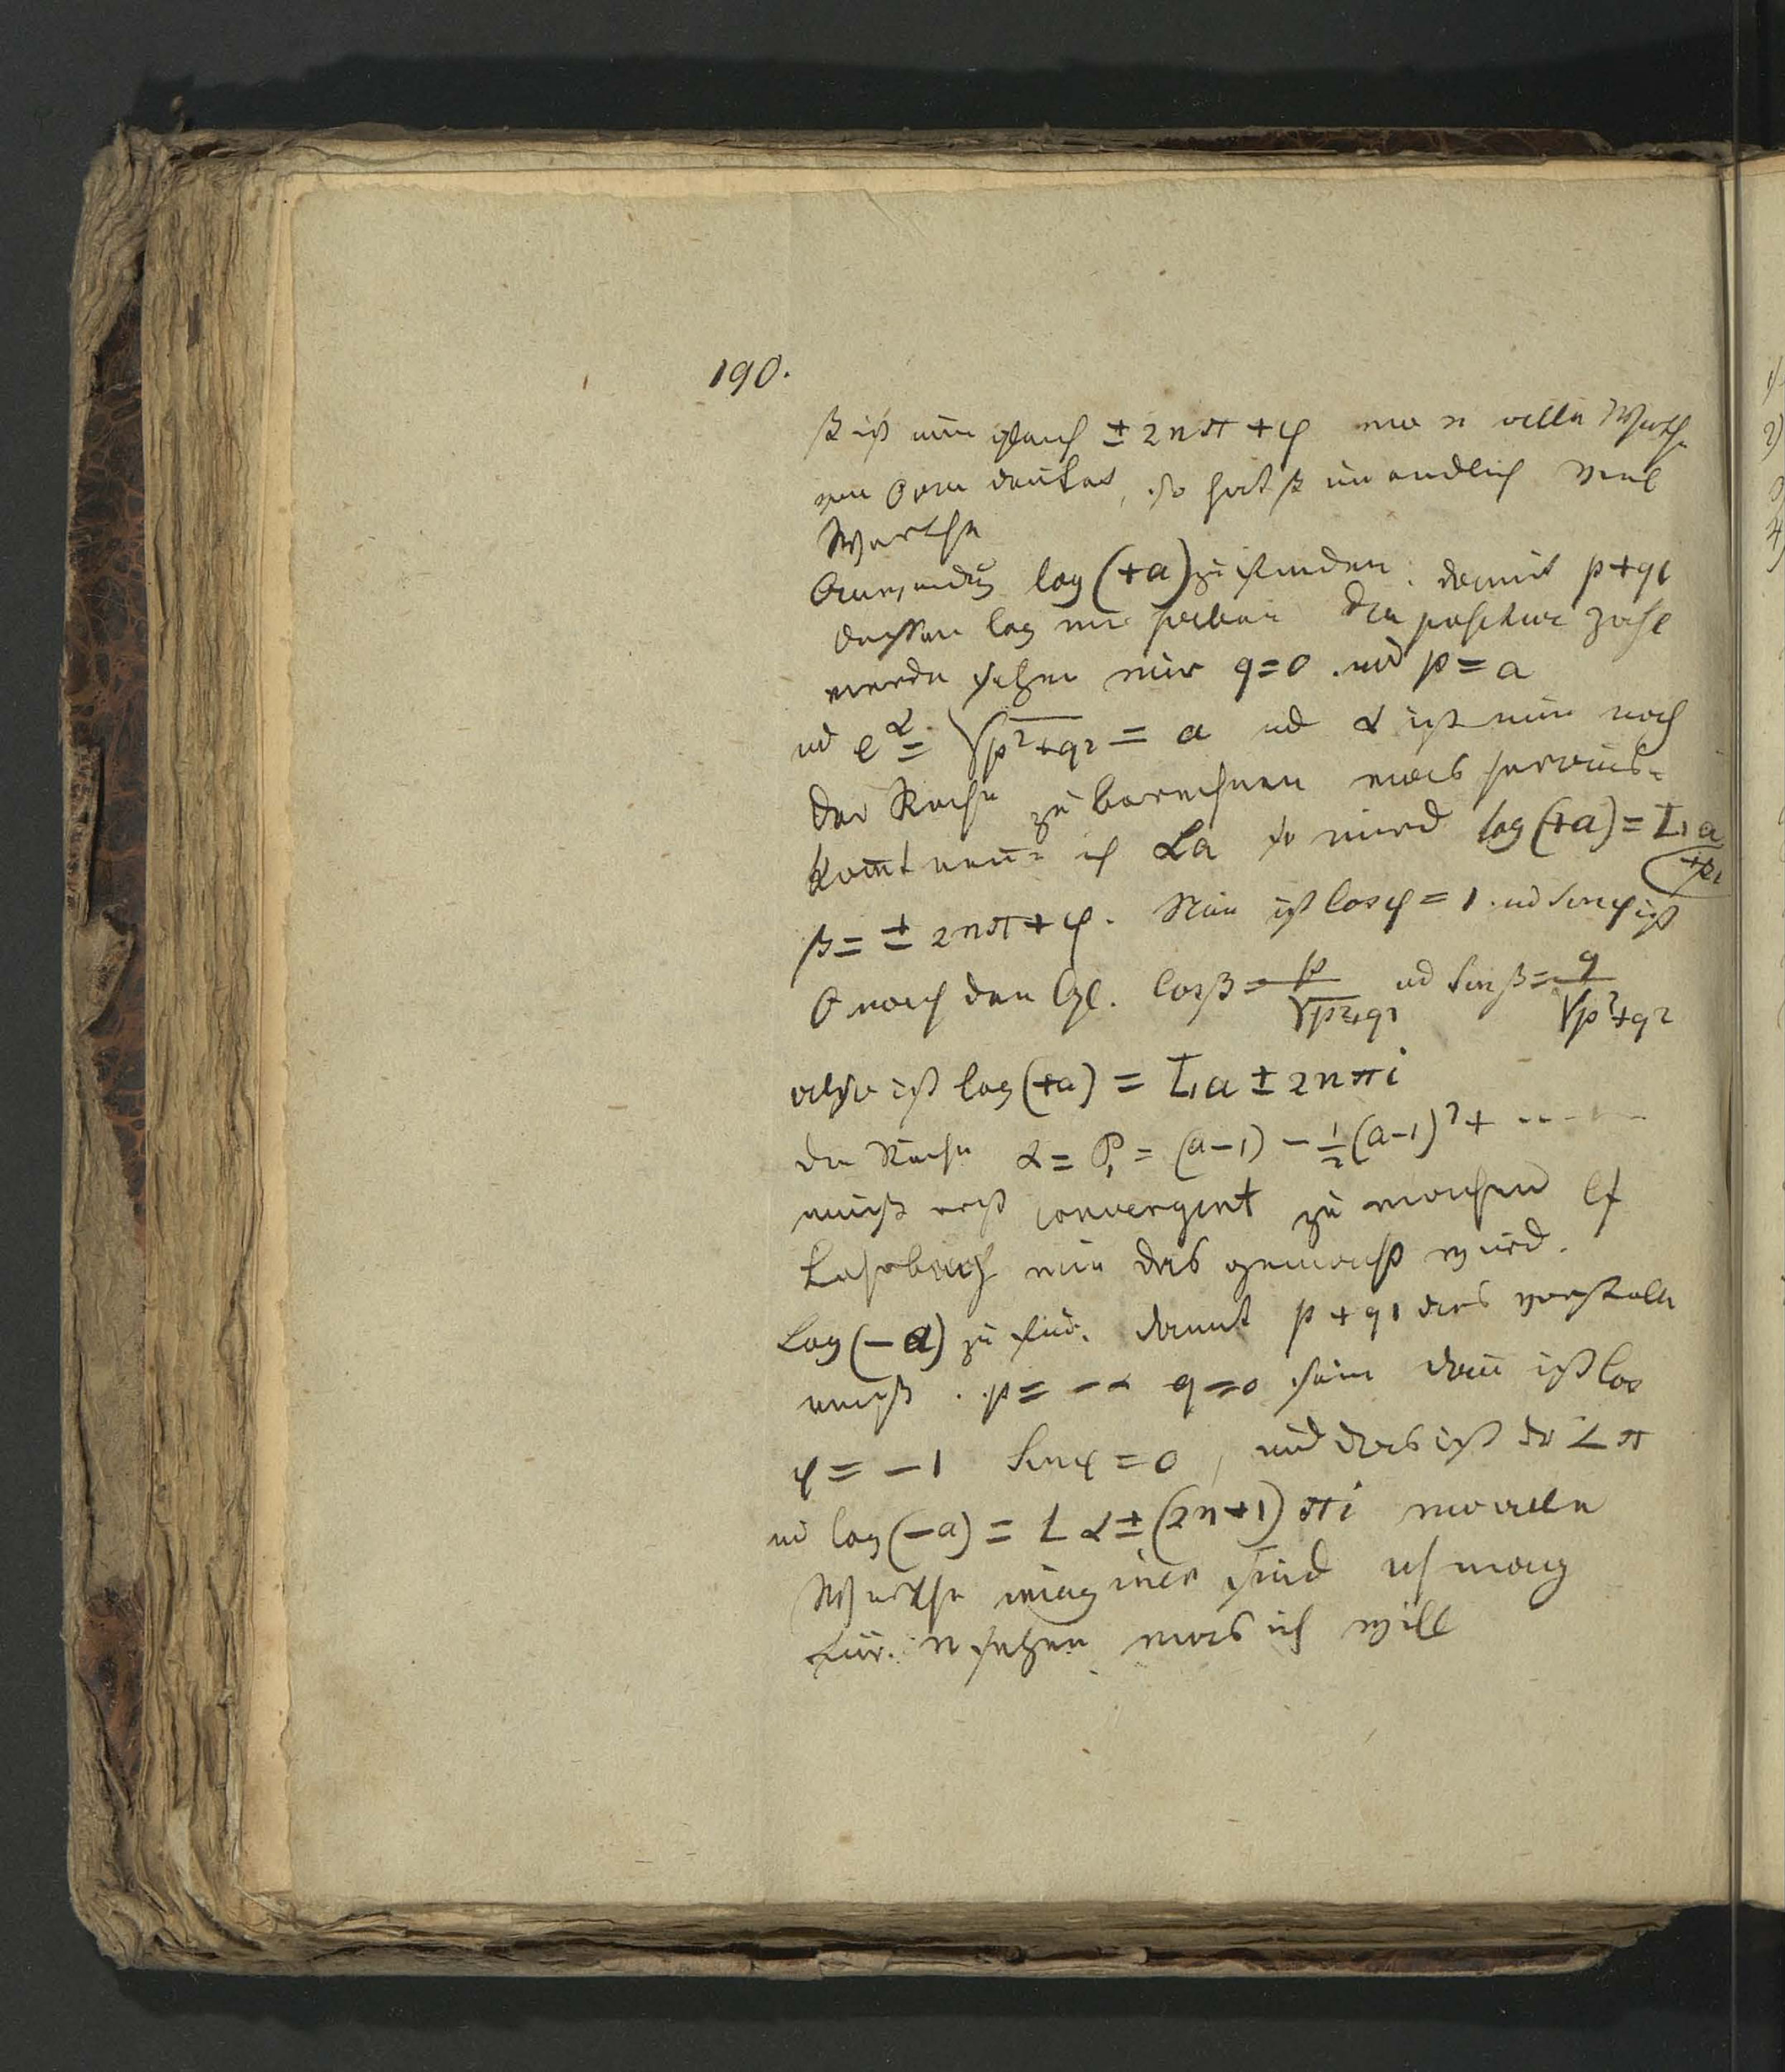 190.
β ist nun gleich ± 2nπ + φ wo n alle Werthe
von 0 an deutet, so hat β unendlich viel
Werthe
Anwendung log (+a) zu finden. damit p+qi
dessen log wir haben die positive Zahl
werde setzen wir q=0 und p = a
und e^α = √p²+q² = a und α ist nun nach
der Reihe zu berechnen was heraus-
komt nenn ich La so wird log (+a) = La
+βi
β = ± 2nπ + φ. Nun ist Cosφ = 1 und Sinφ ist
0 nach den Gl. Cosβ = p/√p²+q² und Sinβ = q/√p²+q²
also ist log (+a) = La ± 2nπi
die Reihe α = P, = (a-1) - 1/2 (a-1)² + ......
muß erst convergent zu machen cf
Lehrbuch wie das gemacht wird.
Log (-a) zu find. damit p+qi das vorstelle
muß p = -a q=0 sein dann ist Cos
φ = -1 Sinφ = 0, und das ist der ∠ π
und log (-a) = Lα ± (2n+1) πi wo alle
Werthe imaginär sind ich mag
für n setzen was ich will